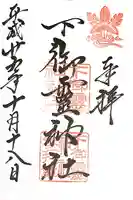 奉拝
下御霊神社
平成廿五年十月十八日